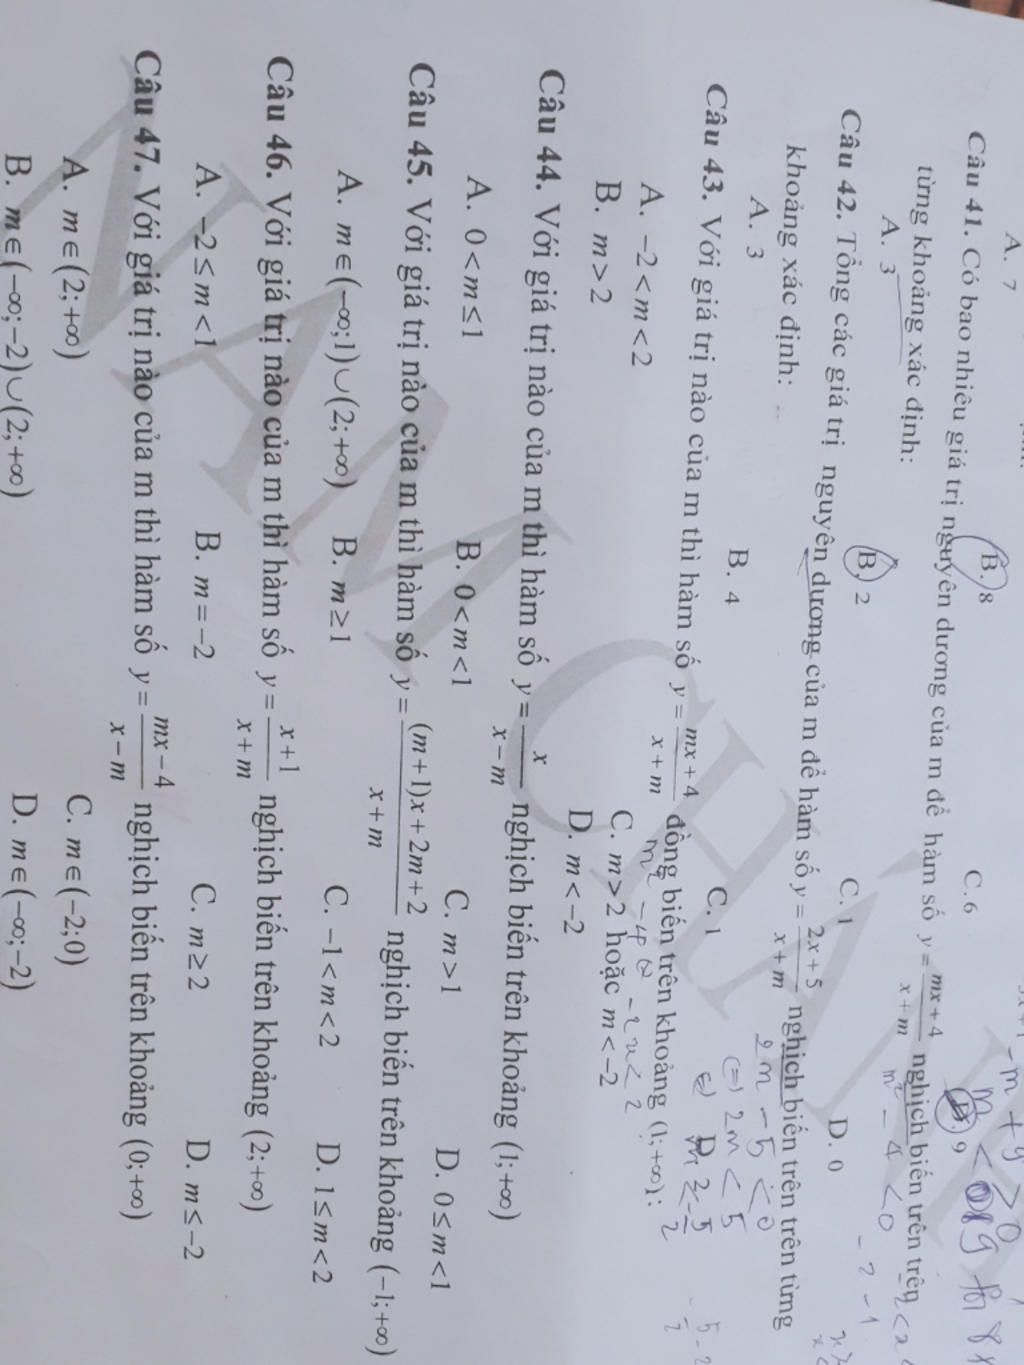 A. 7
B. 8
C. 6
D. 9
Câu 41. Có bao nhiêu giá trị nguyên dương của m để hàm số y = (mx+4)/(x+m) nghịch biến trên trên
từng khoảng xác định:
m² - 4 < 0
A. 3
B. 2
C. 1
D. 0
Câu 42. Tổng các giá trị nguyên dương của m để hàm số y = (2x+5)/(x+m) nghịch biến trên trên từng
khoảng xác định:
2m - 5 < 0
A. 3
B. 4
C. 1
D. 2
Câu 43. Với giá trị nào của m thì hàm số y = (mx+4)/(x+m) đồng biến trên khoảng (1;+∞):
A. -2 < m < 2
C. m > 2 hoặc m < -2
B. m > 2
D. m < -2
Câu 44. Với giá trị nào của m thì hàm số y = x/(x-m) nghịch biến trên khoảng (1;+∞)
A. 0 < m ≤ 1
B. 0 < m < 1
C. m > 1
D. 0 ≤ m < 1
Câu 45. Với giá trị nào của m thì hàm số y = ((m+1)x+2m+2)/(x+m) nghịch biến trên khoảng (-1;+∞)
A. m∈(-∞;1)∪(2;+∞)
B. m ≥ 1
C. -1 < m < 2
D. 1 ≤ m < 2
Câu 46. Với giá trị nào của m thì hàm số y = (x+1)/(x+m) nghịch biến trên khoảng (2;+∞)
A. -2 ≤ m < 1
B. m = -2
C. m ≥ 2
D. m ≤ -2
Câu 47. Với giá trị nào của m thì hàm số y = (mx-4)/(x-m) nghịch biến trên khoảng (0;+∞)
A. m∈(2;+∞)
C. m∈(-2;0)
B. m∈(-∞;-2)∪(2;+∞)
D. m∈(-∞;-2)